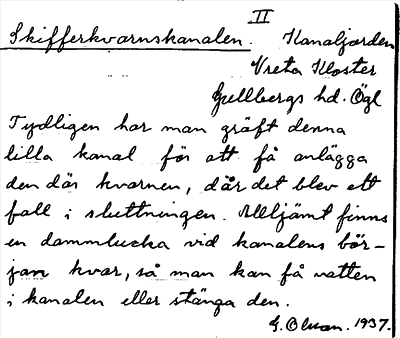 II
Skifferkvarnskanalen. Kanaljorden
Vreta Kloster
Gullbergs hd. Ögl
Tydligen har man gräft denna
lilla kanal för att få anlägga
den där kvarnen, där det blev ett
fall i sluttningen. Alltjämt finns
en dammlucka vid kanalens bör-
jan kvar, så man kan få vatten
i kanalen eller stänga den.
G. Olsson. 1937.